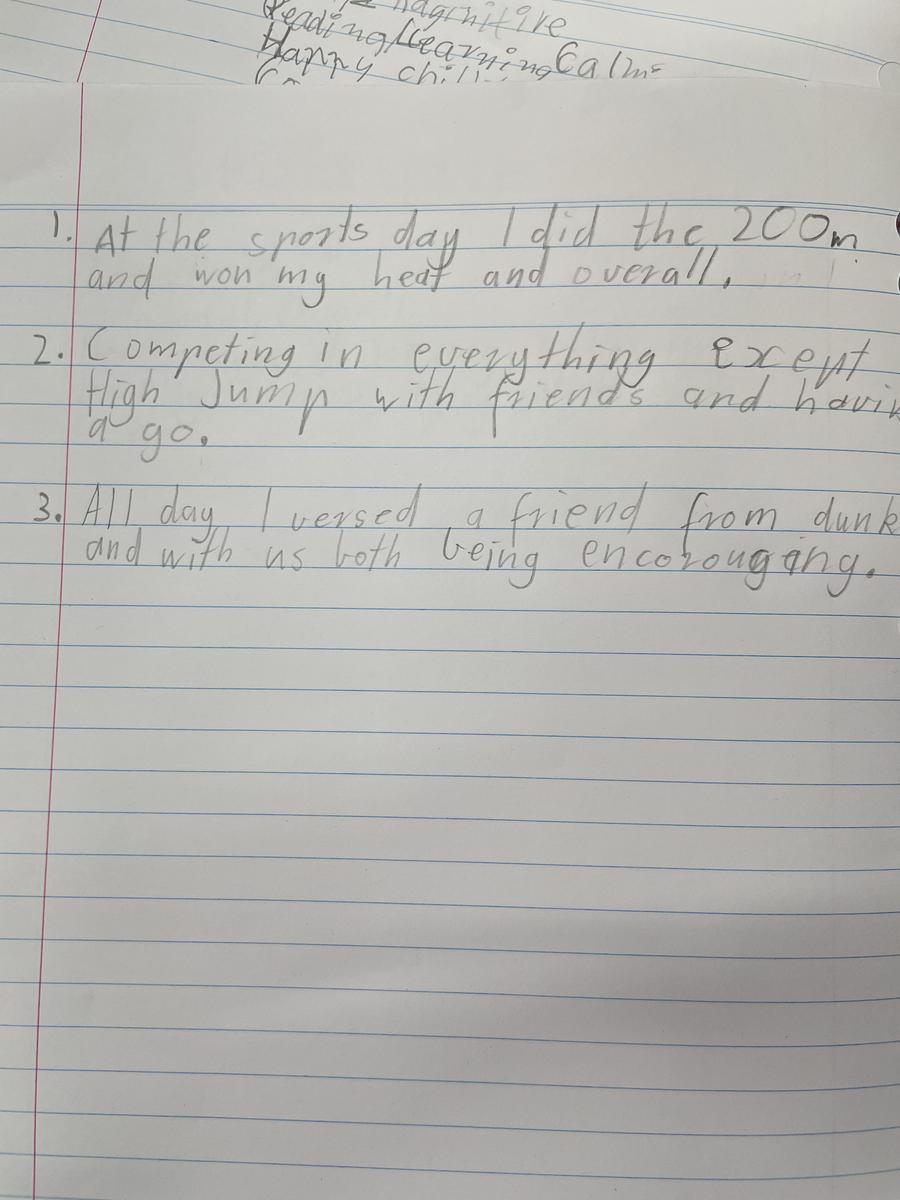 Reading/Learning Calm
Happy
1. At the sports day I did the 200m
and won my heat and overall.
2. Competing in everything except
High Jump with friends and
a go.
3. All day I versed a friend from
and with us both being encorouging.